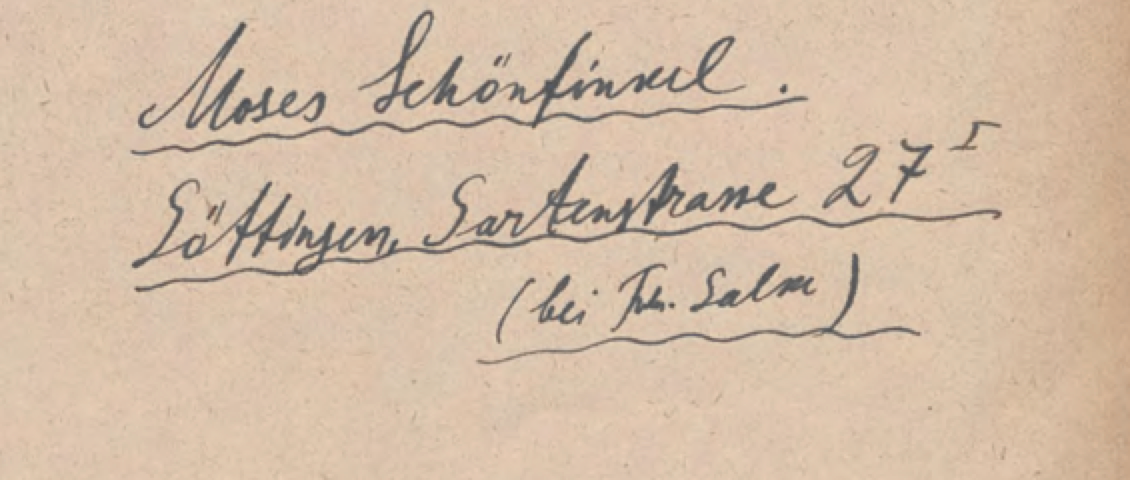 Moses Schönfinkel.
Göttingen, Gartenstrasse 27 I
(bei Frl. Salm)